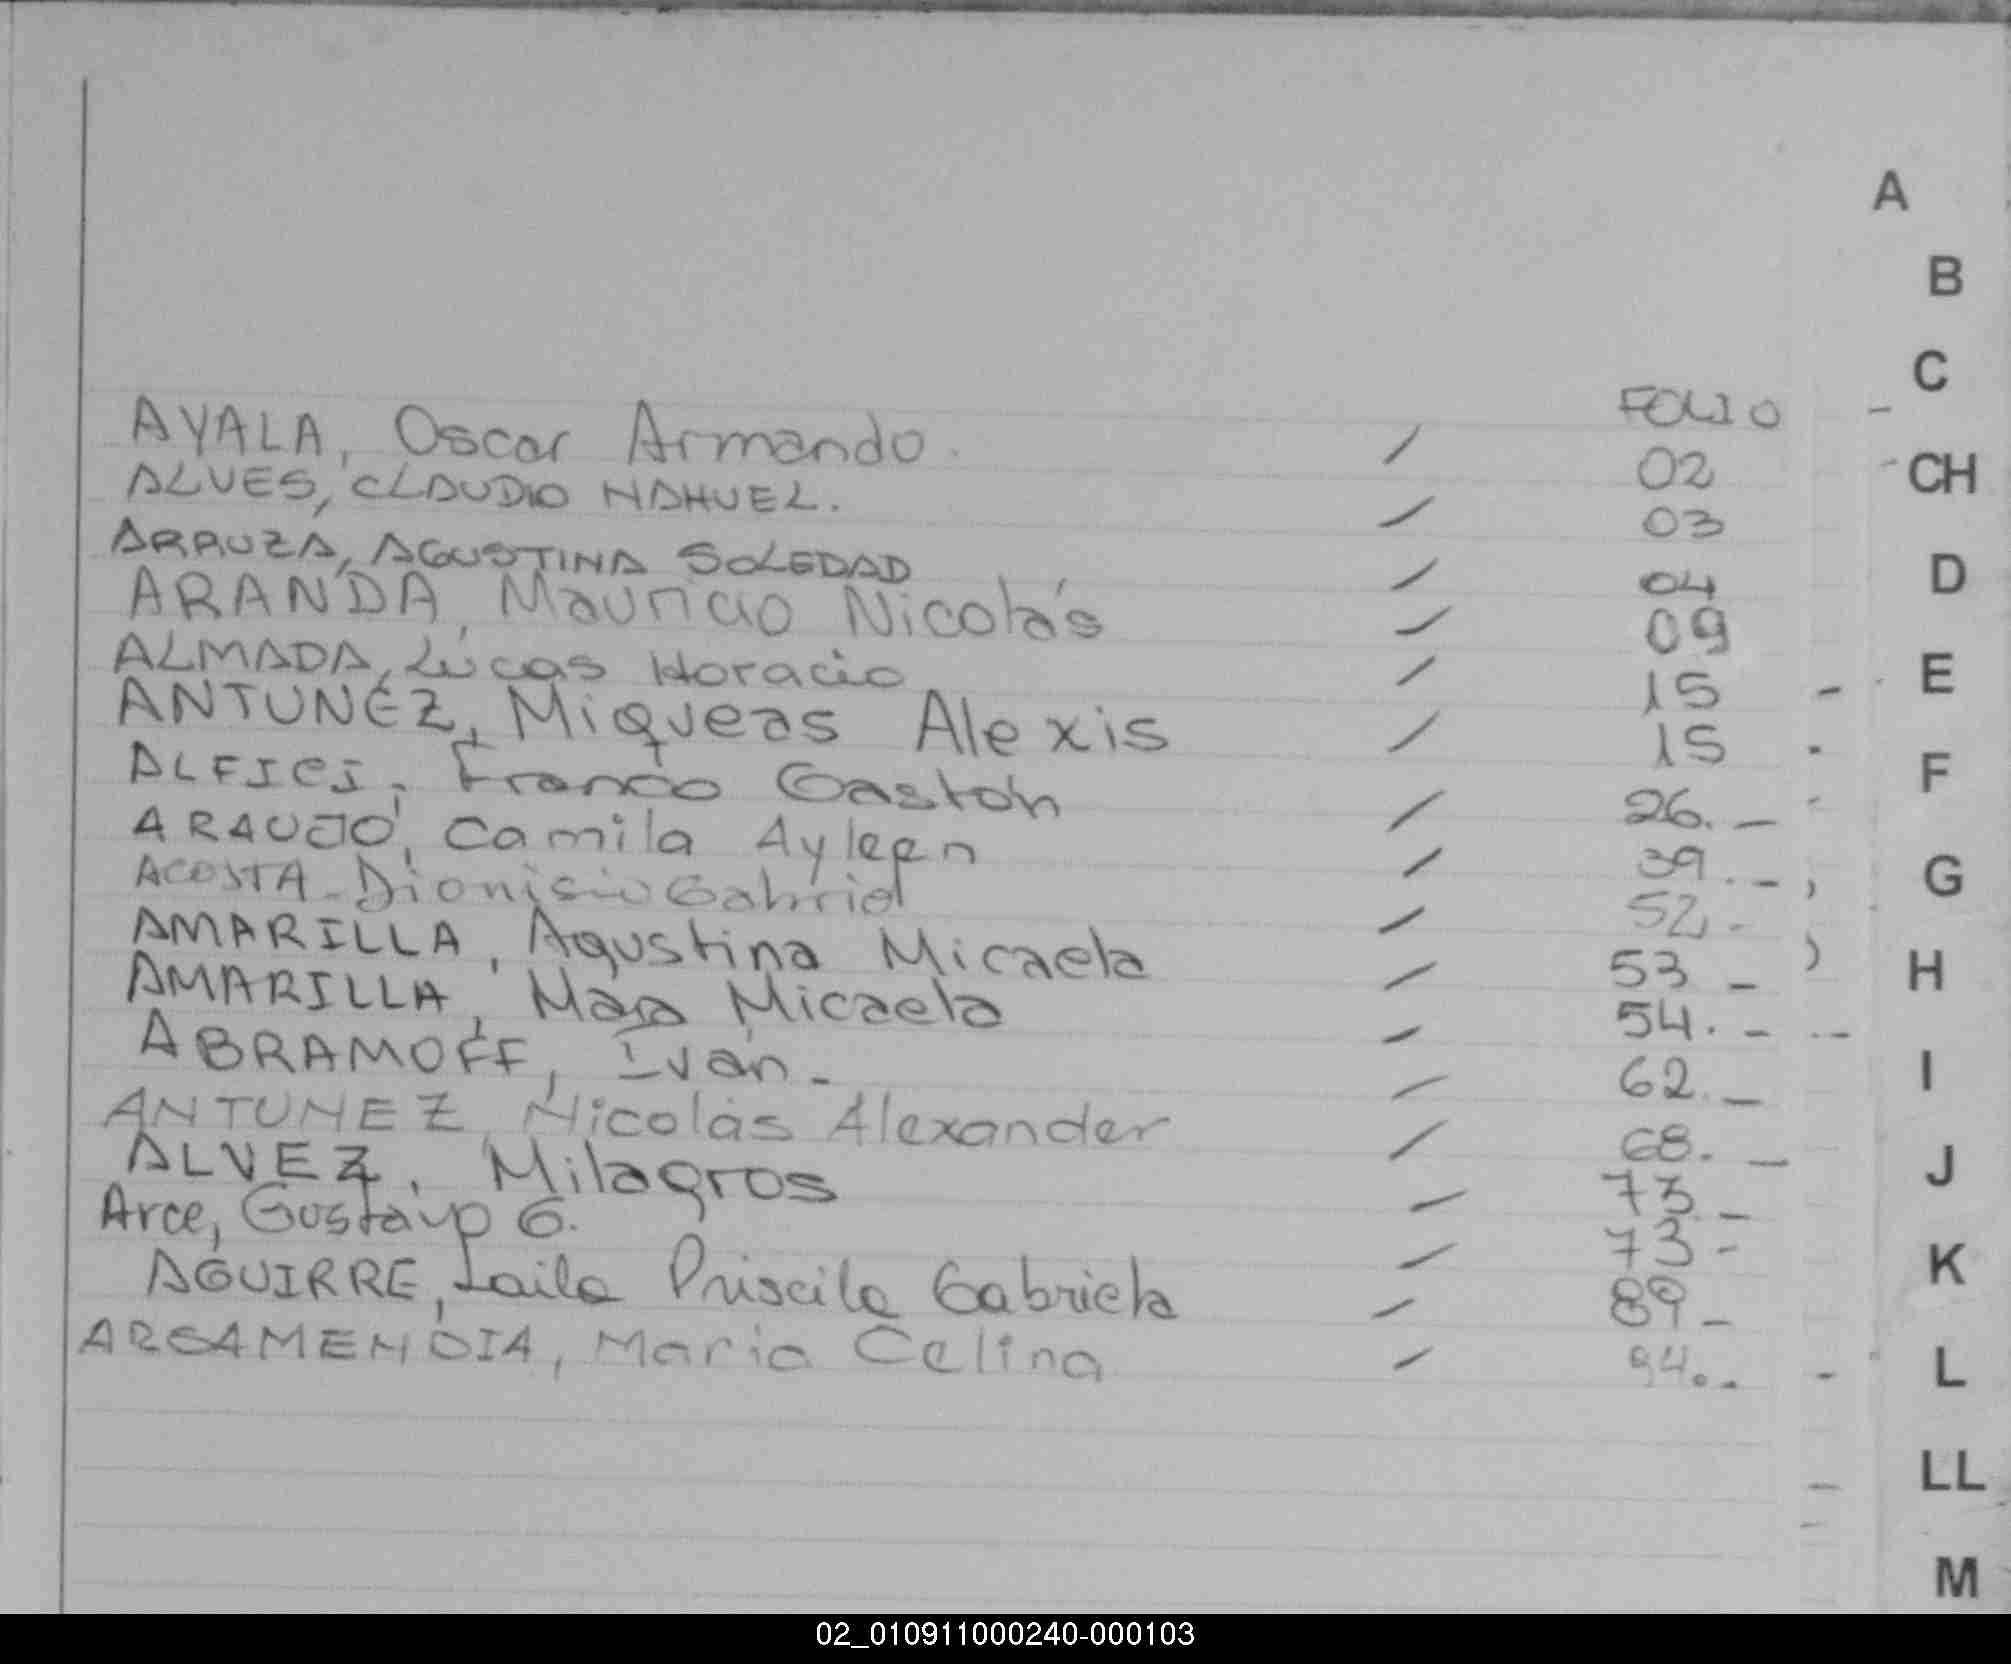 FOLIO
AYALA, Oscar Armando. / 02
ALVES, CLAUDIO NAHUEL. / 03
ARRUZA, AGUSTINA SOLEDAD / 04
ARANDA, Mauricio Nicolás / 09
ALMADA, Lucas Horacio / 15
ANTUNEZ, Miqueas Alexis / 15
ALFICI, Franco Gastón / 26. -
ARAUJO, Camila Ayleen / 39. -
ACOSTA - Dionisio Gabriel / 52. -
AMARILLA, Agustina Micaela / 53 -
AMARILLA, Micaela / 54. -
ABRAMOFF, Iván - / 62. -
ANTUNEZ, Nicolás Alexander / 68. -
ALVEZ, Milagros / 73 -
Arce, Gustavo G. / 73 -
AGUIRRE, Laila Priscila Gabriela / 89 -
ARGAMENDIA, Maria Celina / 94. -
A
B
C
CH
D
E
F
G
H
I
J
K
L
LL
M
02_010911000240-000103